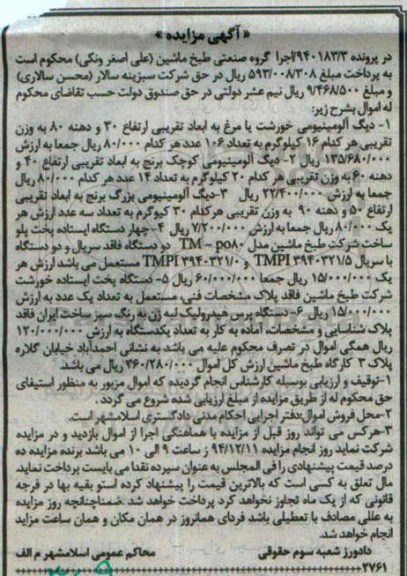 « آگهی مزایده »
در پرونده ۹۴۰۱۸۳/۳/اجرا گروه صنعتی طبخ ماشین (علی اصغر ونکی) محکوم است
به پرداخت مبلغ ۵۹۳/۰۰۸/۳۰۸ ریال در حق شرکت سبزینه سالار (محسن سالاری)
و مبلغ ۹/۴۶۸/۵۰۰ ریال نیم عشر دولتی در حق صندوق دولت حسب تقاضای محکوم
له اموال بشرح زیر:
۱- دیگ آلومینیومی خورشت یا مرغ به ابعاد تقریبی ارتفاع ۳۰ و دهنه ۸۰ به وزن
تقریبی هر کدام ۱۶ کیلوگرم به تعداد ۱۰۶ عدد هر کدام ۸۰/۰۰۰ ریال جمعا به ارزش
۱۳۵/۶۸۰/۰۰۰ ریال ۲- دیگ آلومینیومی کوچک برنج به ابعاد تقریبی ارتفاع ۴۰ و
دهنه ۶۰ به وزن تقریبی هر کدام ۲۰ کیلوگرم به تعداد ۱۴ عدد هر کدام ۸۰/۰۰۰ ریال
جمعا به ارزش ۲۲/۴۰۰/۰۰۰ ریال ۳-دیگ آلومینیومی بزرگ برنج به ابعاد تقریبی
ارتفاع ۵۰ و دهنه ۹۰ به وزن تقریبی هرکدام ۳۰ کیوگرم به تعداد سه عدد ارزش هر
یک ۸۰/۰۰۰ ریال جمعا به ارزش ۷/۲۰۰/۰۰۰ ریال ۴-چهار دستگاه ایستاده پخت پلو
ساخت شرکت طبخ ماشین مدل TM – po۸۰ دو دستگاه فاقد سریال و دو دستگاه
با سریال TMPI ۳۹۴۰۳۲۱/۵ و TMPI ۳۹۴۰۳۲۱/۰ مستعمل می باشد ارزش هر
یک ۱۵/۰۰۰/۰۰۰ ریال جمعا ۶۰/۰۰۰/۰۰۰ ریال ۵- دستگاه پخت ایستاده خورشت
شرکت طبخ ماشین فاقد پلاک مشخصات فنی، مستعمل به تعداد یک عدد به ارزش
۱۵/۰۰۰/۰۰۰ ریال ۶-دستگاه پرس هیدرولیک لبه زن به رنگ سبز ساخت ایران فاقد
پلاک شناسایی و مشخصات، آماده به کار به تعداد یکدستگاه به ارزش ۱۲۰/۰۰۰/۰۰۰
ریال همگی اموال در تصرف محکوم علیه می باشد به نشانی احمدآباد خیابان گلاره
پلاک ۳ کارگاه طبخ ماشین ارزش کل اموال ۳۶۰/۲۸۰/۰۰۰ ریال می باشد
۱-توقیف و ارزیابی بوسیله کارشناس انجام گردیده که اموال مزبور به منظور استیفای
حق محکوم له از طریق مزایده از مبلغ ارزیابی شده شروع می گردد.
۲-محل فروش اموال:دفتر اجرایی احکام مدنی دادگستری اسلامشهر است.
۳-هرکس می تواند روز قبل از مزایده با هماهنگی اجرا از اموال بازدید و در مزایده
شرکت نماید روز انجام مزایده ۹۴/۱۲/۱۱ ز ساعت ۹ الی ۱۰ می باشد برنده مزایده ده
درصد قیمت پیشنهادی را فی المجلس به عنوان سپرده نقدا می بایست پرداخت نماید
مال تعلق به کسی است که بالاترین قیمت را پیشنهاد کرده استو بقیه بها در فرجه
قانونی که از یک ماه تجاوز نخواهد کرد پرداخت خواهد شد .ضمناچنانچه روز مزایده
به عللی مصادف با تعطیلی باشد فردای همانروز در همان مکان و همان ساعت مزاید
انجام خواهد شد.
دادورز شعبه سوم حقوقی محاکم عمومی اسلامشهر م الف
۲۷۶۱